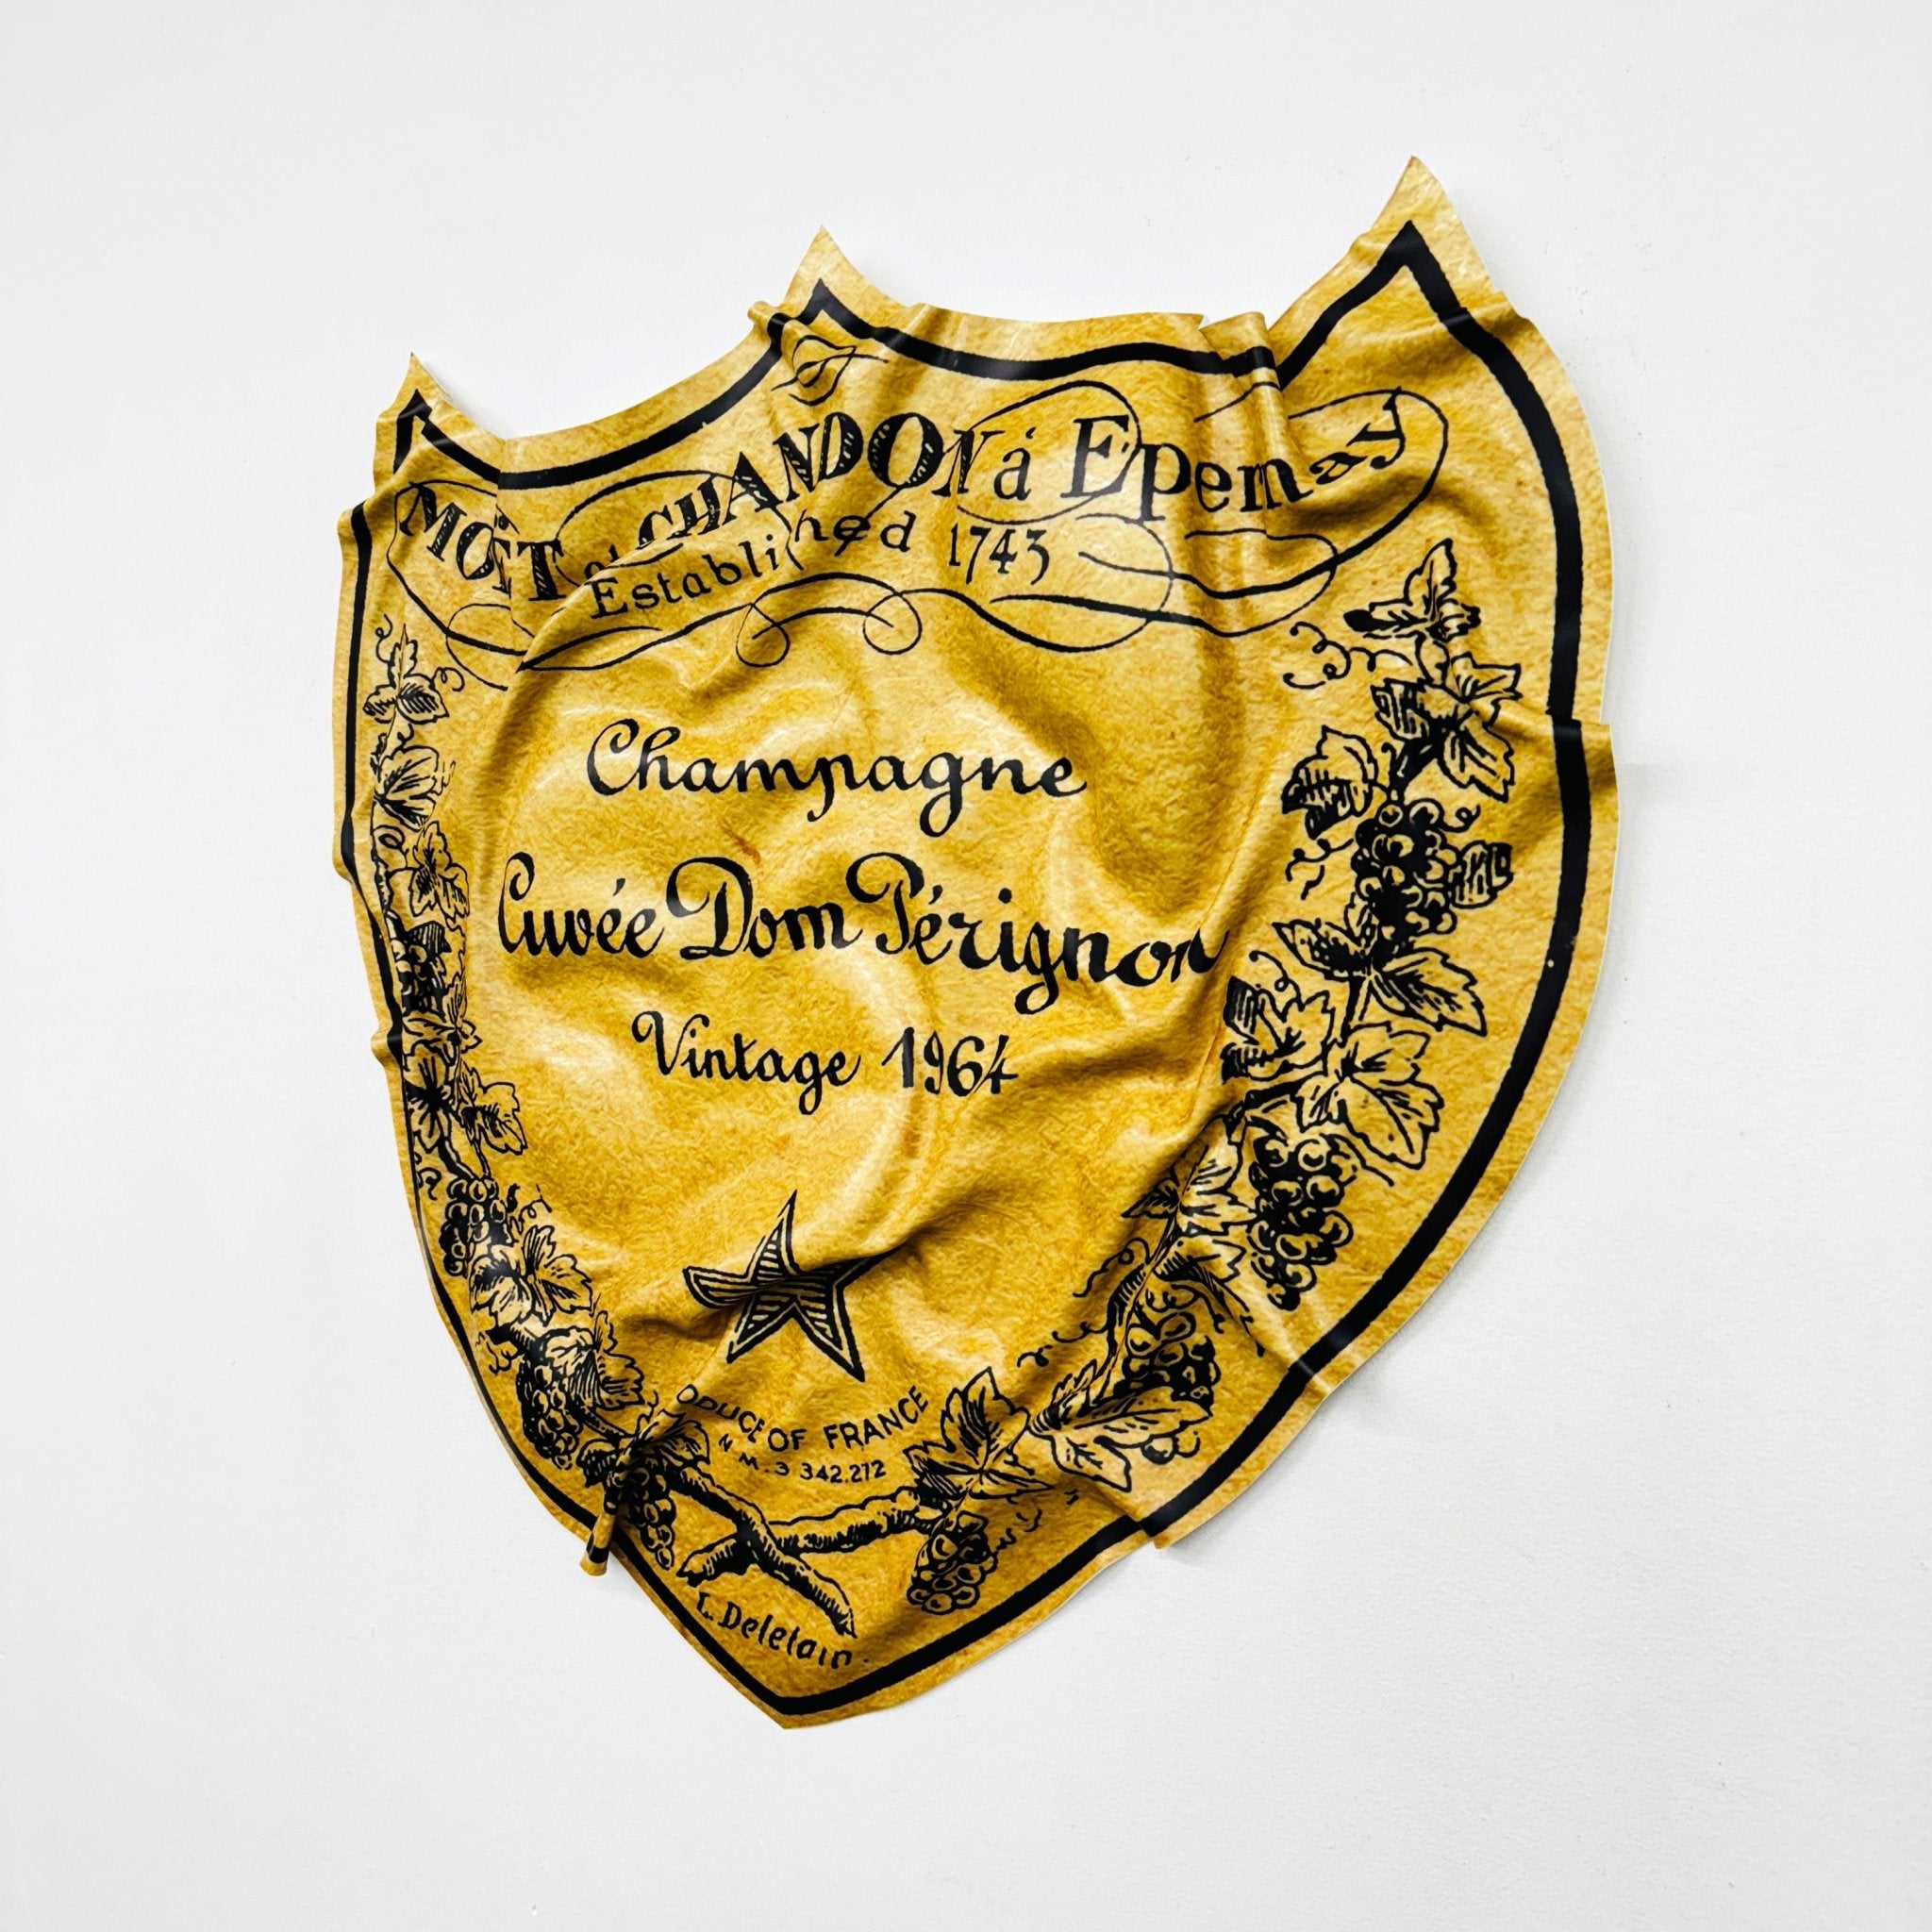 MOËT et CHANDON á Epernay
Established 1743
Champagne
Cuvée Dom Pérignon
Vintage 1964
ODUCE OF FRANCE
N.M. 3 342.272
L. Deletain.